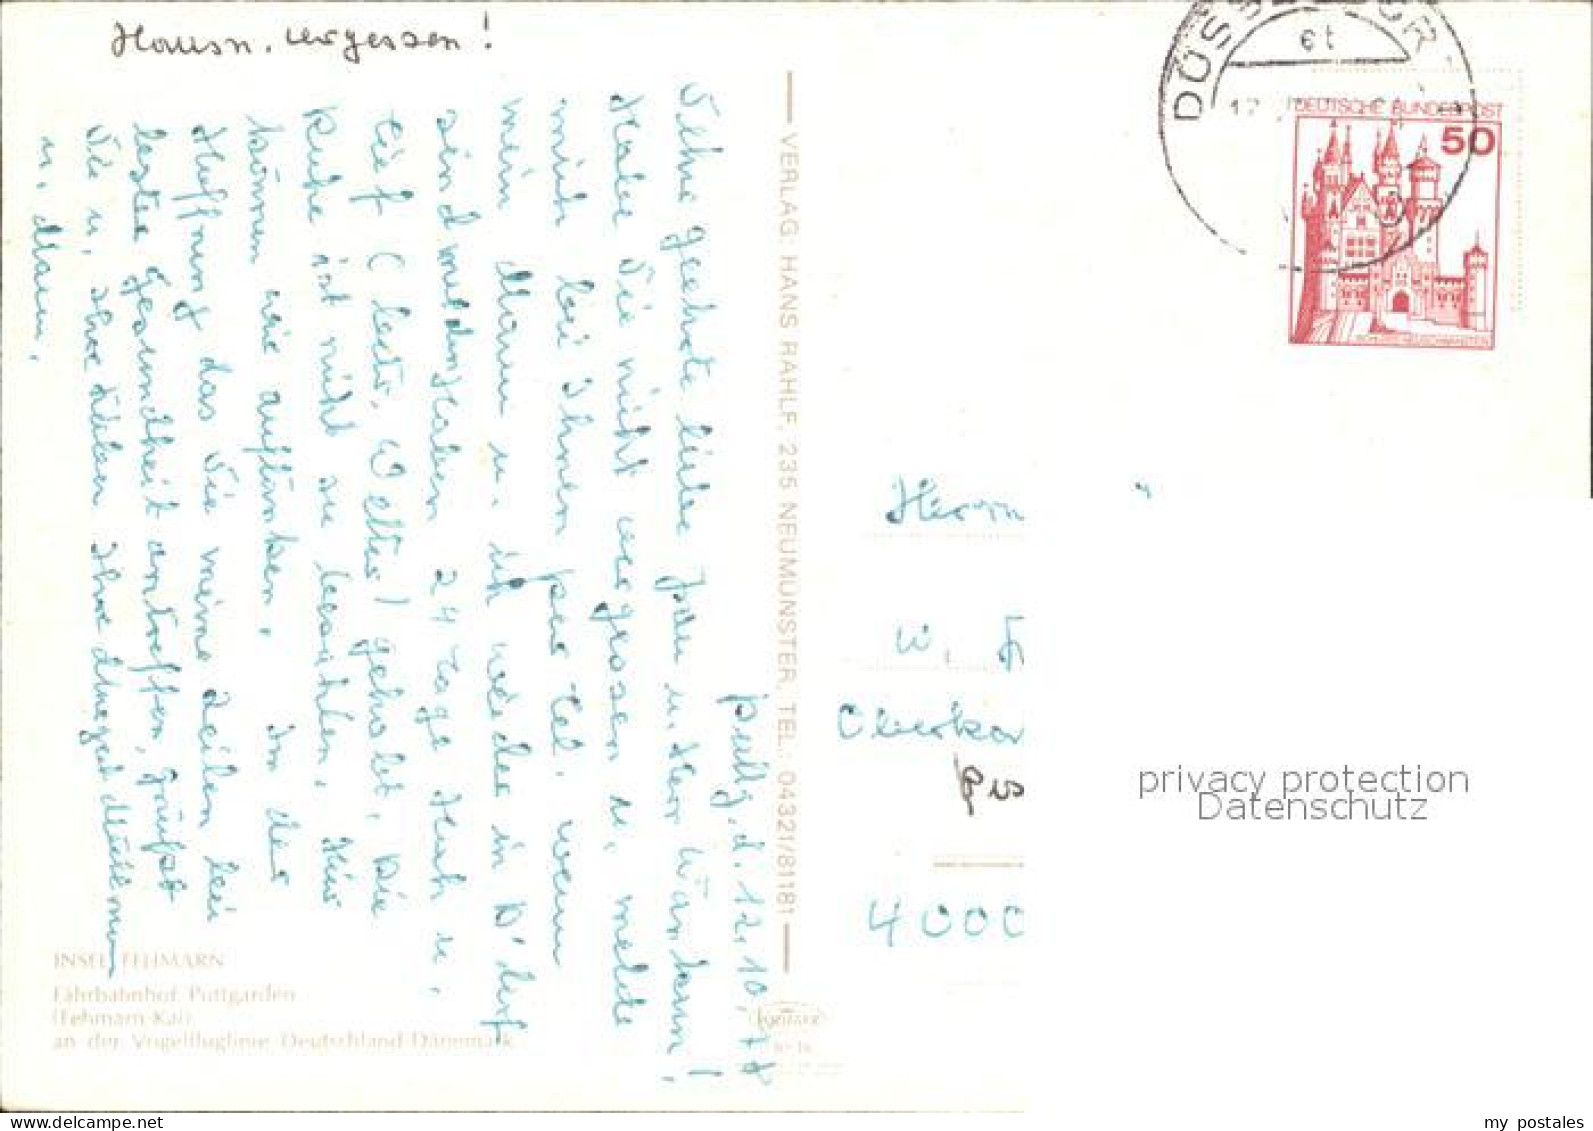 Hausn. vergessen!
Puttg. d. 12.10.77
Sehr geehrte liebe Frau u. Herr
Habe Sie nicht vergessen u. melde
mich bei Ihnen per Tel. wenn
mein Mann u. ich wieder in D'dorf
sind Haben 24 Tage Hoch u.
tief ( Wetter) gehabt, Die
Ruhe ist nicht zu bezahlen, Hier
können wir auftanken, In der
Hoffnung das Sie meine Zeilen bei
bester Gesundheit antreffen, grüßt
Sie u, Ihre Lieben Ihre
u. Mann,
VERLAG: HANS RAHLF, 235 NEUMÜNSTER, TEL.: 04321/81181
INSEL FEHMARN
Fährbahnhof Puttgarden
(Fehmarn-Kai)
an der Vogelfluglinie Deutschland Dänemark
DÜSSELDOR
et
DEUTSCHE BUNDESPOST
50
SCHLOSS NEUSCHWANSTEIN
Herrn
W. F
Oberkas
4000
privacy protection
Datenschutz
my postales